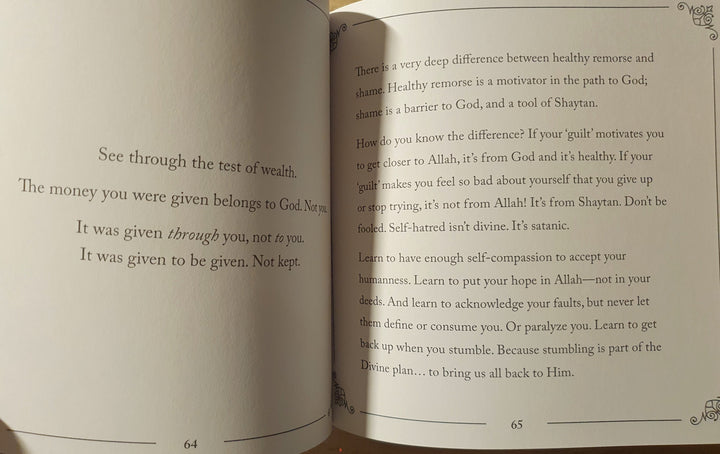 See through the test of wealth.
The money you were given belongs to God. Not you.
It was given through you, not to you.
It was given to be given. Not kept.
64
There is a very deep difference between healthy remorse and
shame. Healthy remorse is a motivator in the path to God;
shame is a barrier to God, and a tool of Shaytan.
How do you know the difference? If your ‘guilt’ motivates you
to get closer to Allah, it’s from God and it’s healthy. If your
‘guilt’ makes you feel so bad about yourself that you give up
or stop trying, it’s not from Allah! It’s from Shaytan. Don’t be
fooled. Self-hatred isn’t divine. It’s satanic.
Learn to have enough self-compassion to accept your
humanness. Learn to put your hope in Allah—not in your
deeds. And learn to acknowledge your faults, but never let
them define or consume you. Or paralyze you. Learn to get
back up when you stumble. Because stumbling is part of the
Divine plan… to bring us all back to Him.
65